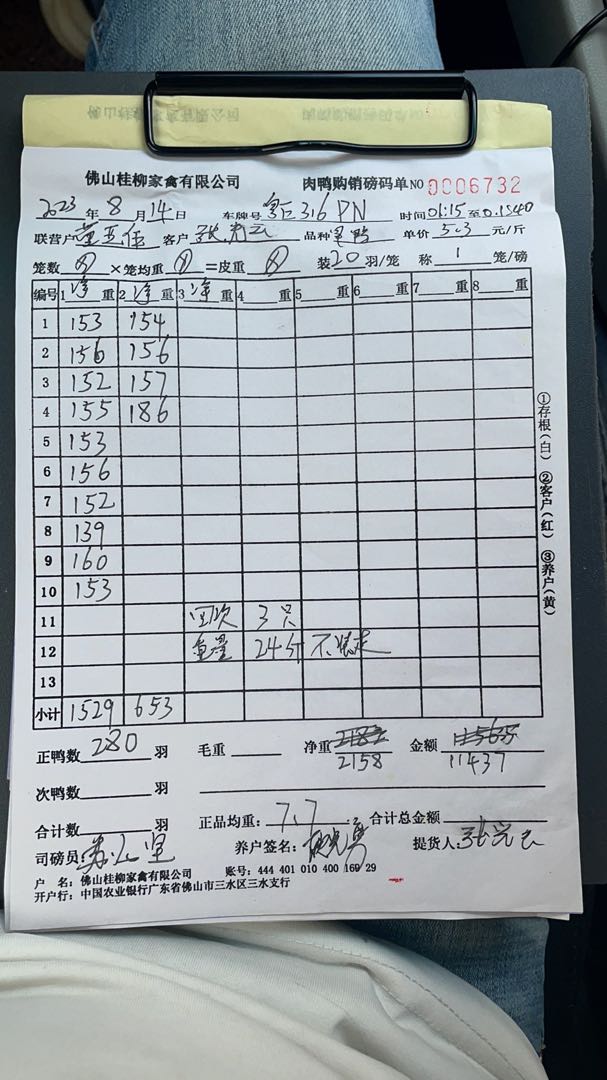 佛山桂柳家禽有限公司 肉鸭购销磅码单NO 0006732
2023年8月14日 车牌号 316PN 时间01:15至
联营户 客户 品种 单价5.3元/斤
笼数 ×笼均重 =皮重 装20羽/笼 称1笼/磅
编号 1净重 2净重 3净重 4重 5重 6重 7重 8重
1 153 154
2 156 156
3 152 157
4 155 186
5 153
6 156
7 152
8 139
9 160
10 153
11 回次 3只
12 重量 24斤 不
13
小计 1529 653
正鸭数280羽 毛重 净重2182 金额11565
2158 11437
次鸭数 羽
合计数 羽 正品均重:7.7 合计总金额
司磅员: 养户签名: 提货人:
户 名:佛山桂柳家禽有限公司 账号:444 401 010 400 169 29
开户行:中国农业银行广东省佛山市三水区三水支行
①存根(白) ②客户(红) ③养户(黄)